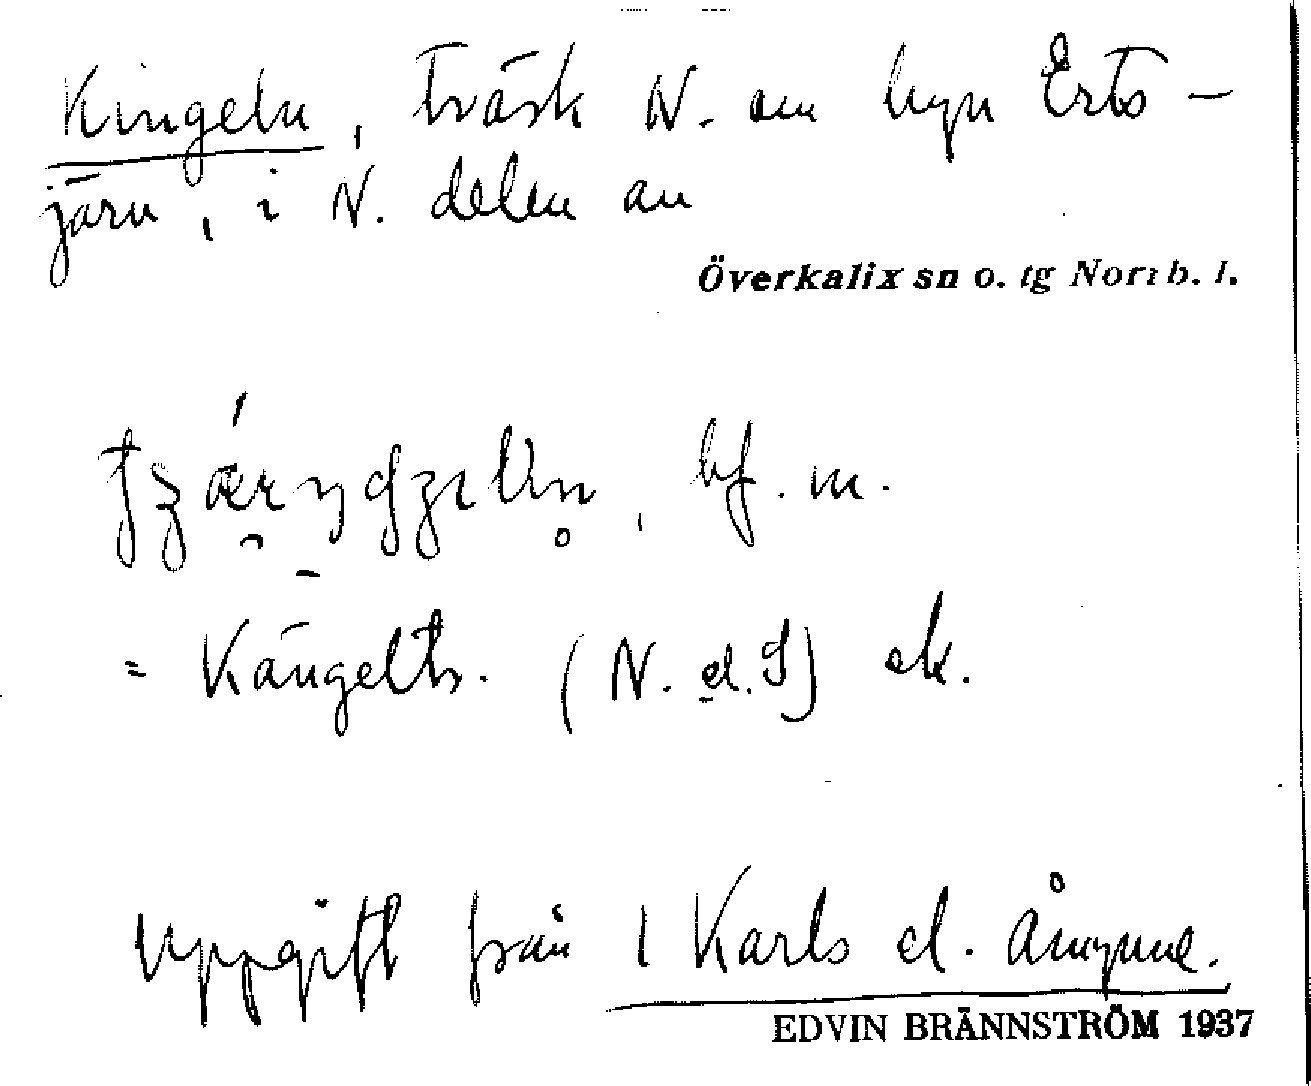 Kingeln, träsk N. om byn Erts-
järv, i N. delen av
Överkalix sn o. tg Norrb. l.
bf. m.
= Kängeltr. (N. d. S) ek.
Uppgift från 1 Karls d. Åmynne.
EDVIN BRÄNNSTRÖM 1937